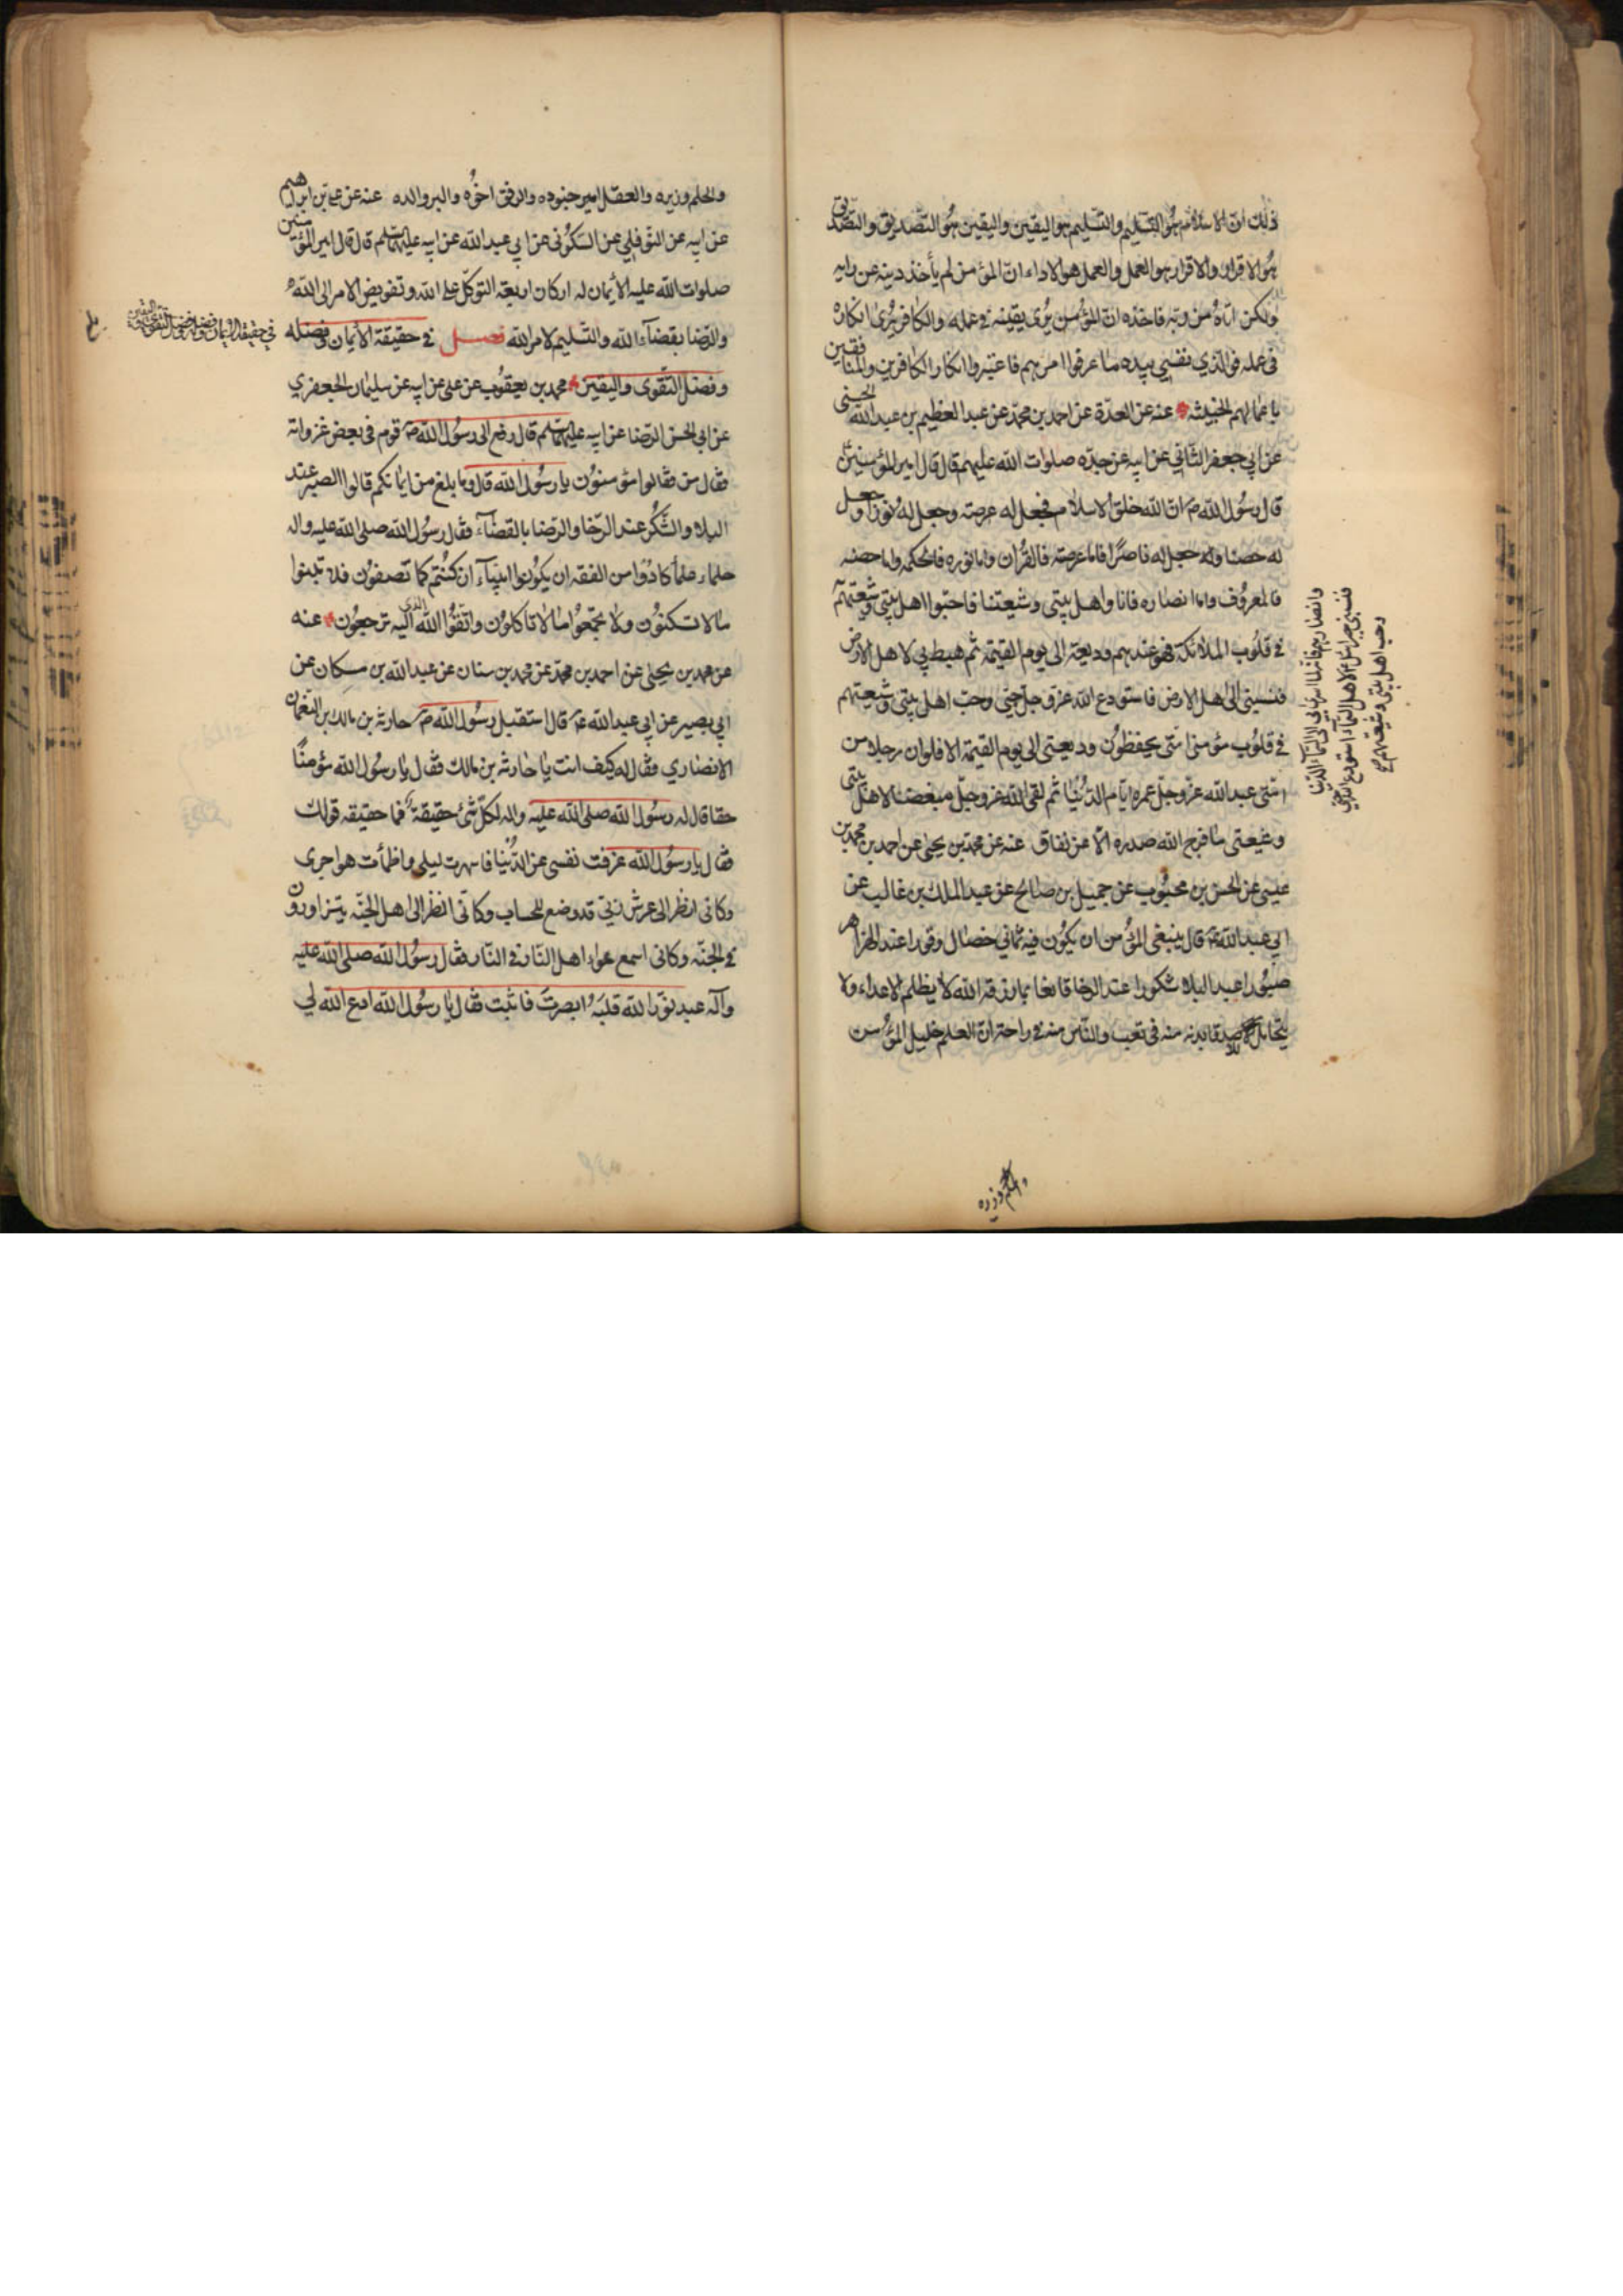 ذلك ان الاسلام هو التسليم والتسليم هو اليقين واليقين هو التصديق والتصديق
هو الاقرار والاقرار هو العمل والعمل هو الاداء ان المؤمن لم يأخذ دينه عن رايه
ولكن اتاه من ربه فاخذه ان المؤمن يرى يقينه في عمله والكافر يرى انكاره
في عمله فوالذي نفسي بيده ما عرفوا امرهم فاعتبروا انكار الكافرين والمنافقين
باعمالهم الخبيثه عنه عن العدة عن احمد بن محمد عن عبد العظيم بن عبد الله الحسنى
عن ابي جعفر الثاني عن ابيه عن جده صلوات الله عليهم قال قال امير المؤمنين
قال رسول الله ص ان الله خلق الاسلام فجعل له عرصة وجعل له نورا وجعل
له حصنا وجعل له ناصرا فاما عرصته فالقران واما نوره فالحكمه واما حصنه
فالمعروف واما انصاره فانا واهل بيتي وشيعتنا فاحبوا اهل بيتي وشيعتهم
في قلوب الملائكة فهو عندهم وديعة الى يوم القيمة ثم هبط بي لاهل الارض
فنسبني الى اهل الارض فاستودع الله عز وجل حبي وحب اهل بيتي وشيعتهم
في قلوب مؤمني امتى يحفظون وديعتى الى يوم القيمة الا فلو ان رجلا من
امتى عبد الله عز وجل عمره ايام الدنيا ثم لقى الله عز وجل مبغضا لاهل بيتى
وشيعتى ما فرج الله صدره الا عن نفاق عنه عن محمد بن يحيى عن احمد بن محمد بن
عيسى عن الحسن بن محبوب عن جميل بن صالح عن عبد الملك بن غالب عن
ابي عبد الله ع قال ينبغى المؤمن ان يكون فيه ثماني خصال وقورا عند الهزاهز
صبورا عند البلاء شكورا عند الرخا قانعا بما رزقه الله لا يظلم الاعداء ولا
يتحامل للاصدقا بدنه منه فى تعب والناس منه في راحة ان العلم خليل المؤمن
وانصارهم فانه لما اسري بي الى السمآء الدنيا
فنسبنى جبرائيل ع لاهل السمآء استودع الله حبي
وحب اهل بيتى وشيعتهم صح
والحلم وزيره
والحلم وزيره والعقل امير جنوده والرفق اخوه والبر والده عنه عن علي بن ابراهيم
عن ابيه عن النوفلي عن السكونى عن ابي عبد الله عن ابيه عليهما السلم قال قال امير المؤمنين
صلوات الله عليه الأيمان له اركان اربعة التوكل على الله وتفويض الامر الى الله
والرضا بقضآء الله والتسليم لامر الله فصل في حقيقة الأيمان وفضله
في حقيقة الايمان وفضله وفضل التقوى واليقين
وفضل التقوى واليقين محمد بن يعقوب عن على عن ابيه عن سليمان الجعفري
عن ابي الحسن الرضا عن ابيه عليهما السلم قال رفع الى رسول الله ص قوم فى بعض غزواته
فقال من فقالوا مؤمنون يا رسول الله قال وما بلغ من ايمانكم قالوا الصبر عند
البلاء والشكر عند الرخا والرضا بالقضآء فقال رسول الله صلى الله عليه واله
حلماء علمآ كادوا من الفقه ان يكونوا انبيآء ان كنتم كما تصفون فلا تبنوا
مالا تسكنون ولا تجمعوا مالا تأكلون واتقوا الله الذى اليه ترجعون عنه
عن محمد بن يحيى عن احمد بن محمد عن محمد بن سنان عن عبد الله بن مسكان عن
ابي بصير عن ابي عبد الله ع قال استقبل رسول الله ص حارثه بن مالك بن النعمان
الانصاري فقال له كيف انت يا حارثه بن مالك فقال يا رسول الله مؤمنا
حقا قال له رسول الله صلى الله عليه واله لكل شئ حقيقة فما حقيقه قولك
فقال يا رسول الله عزفت نفسى عن الدنيا فاسهرت ليلى واظمأت هواجرى
وكانى انظر الى عرش ربي قد وضع للحساب وكانى انظر الى اهل الجنه يتزاورون
في الجنه وكانى اسمع عواء اهل النار فى النار فقال رسول الله صلى الله عليه
وآله عبد نور الله قلبه ابصرت فاثبت فقال يا رسول الله ادع الله لي